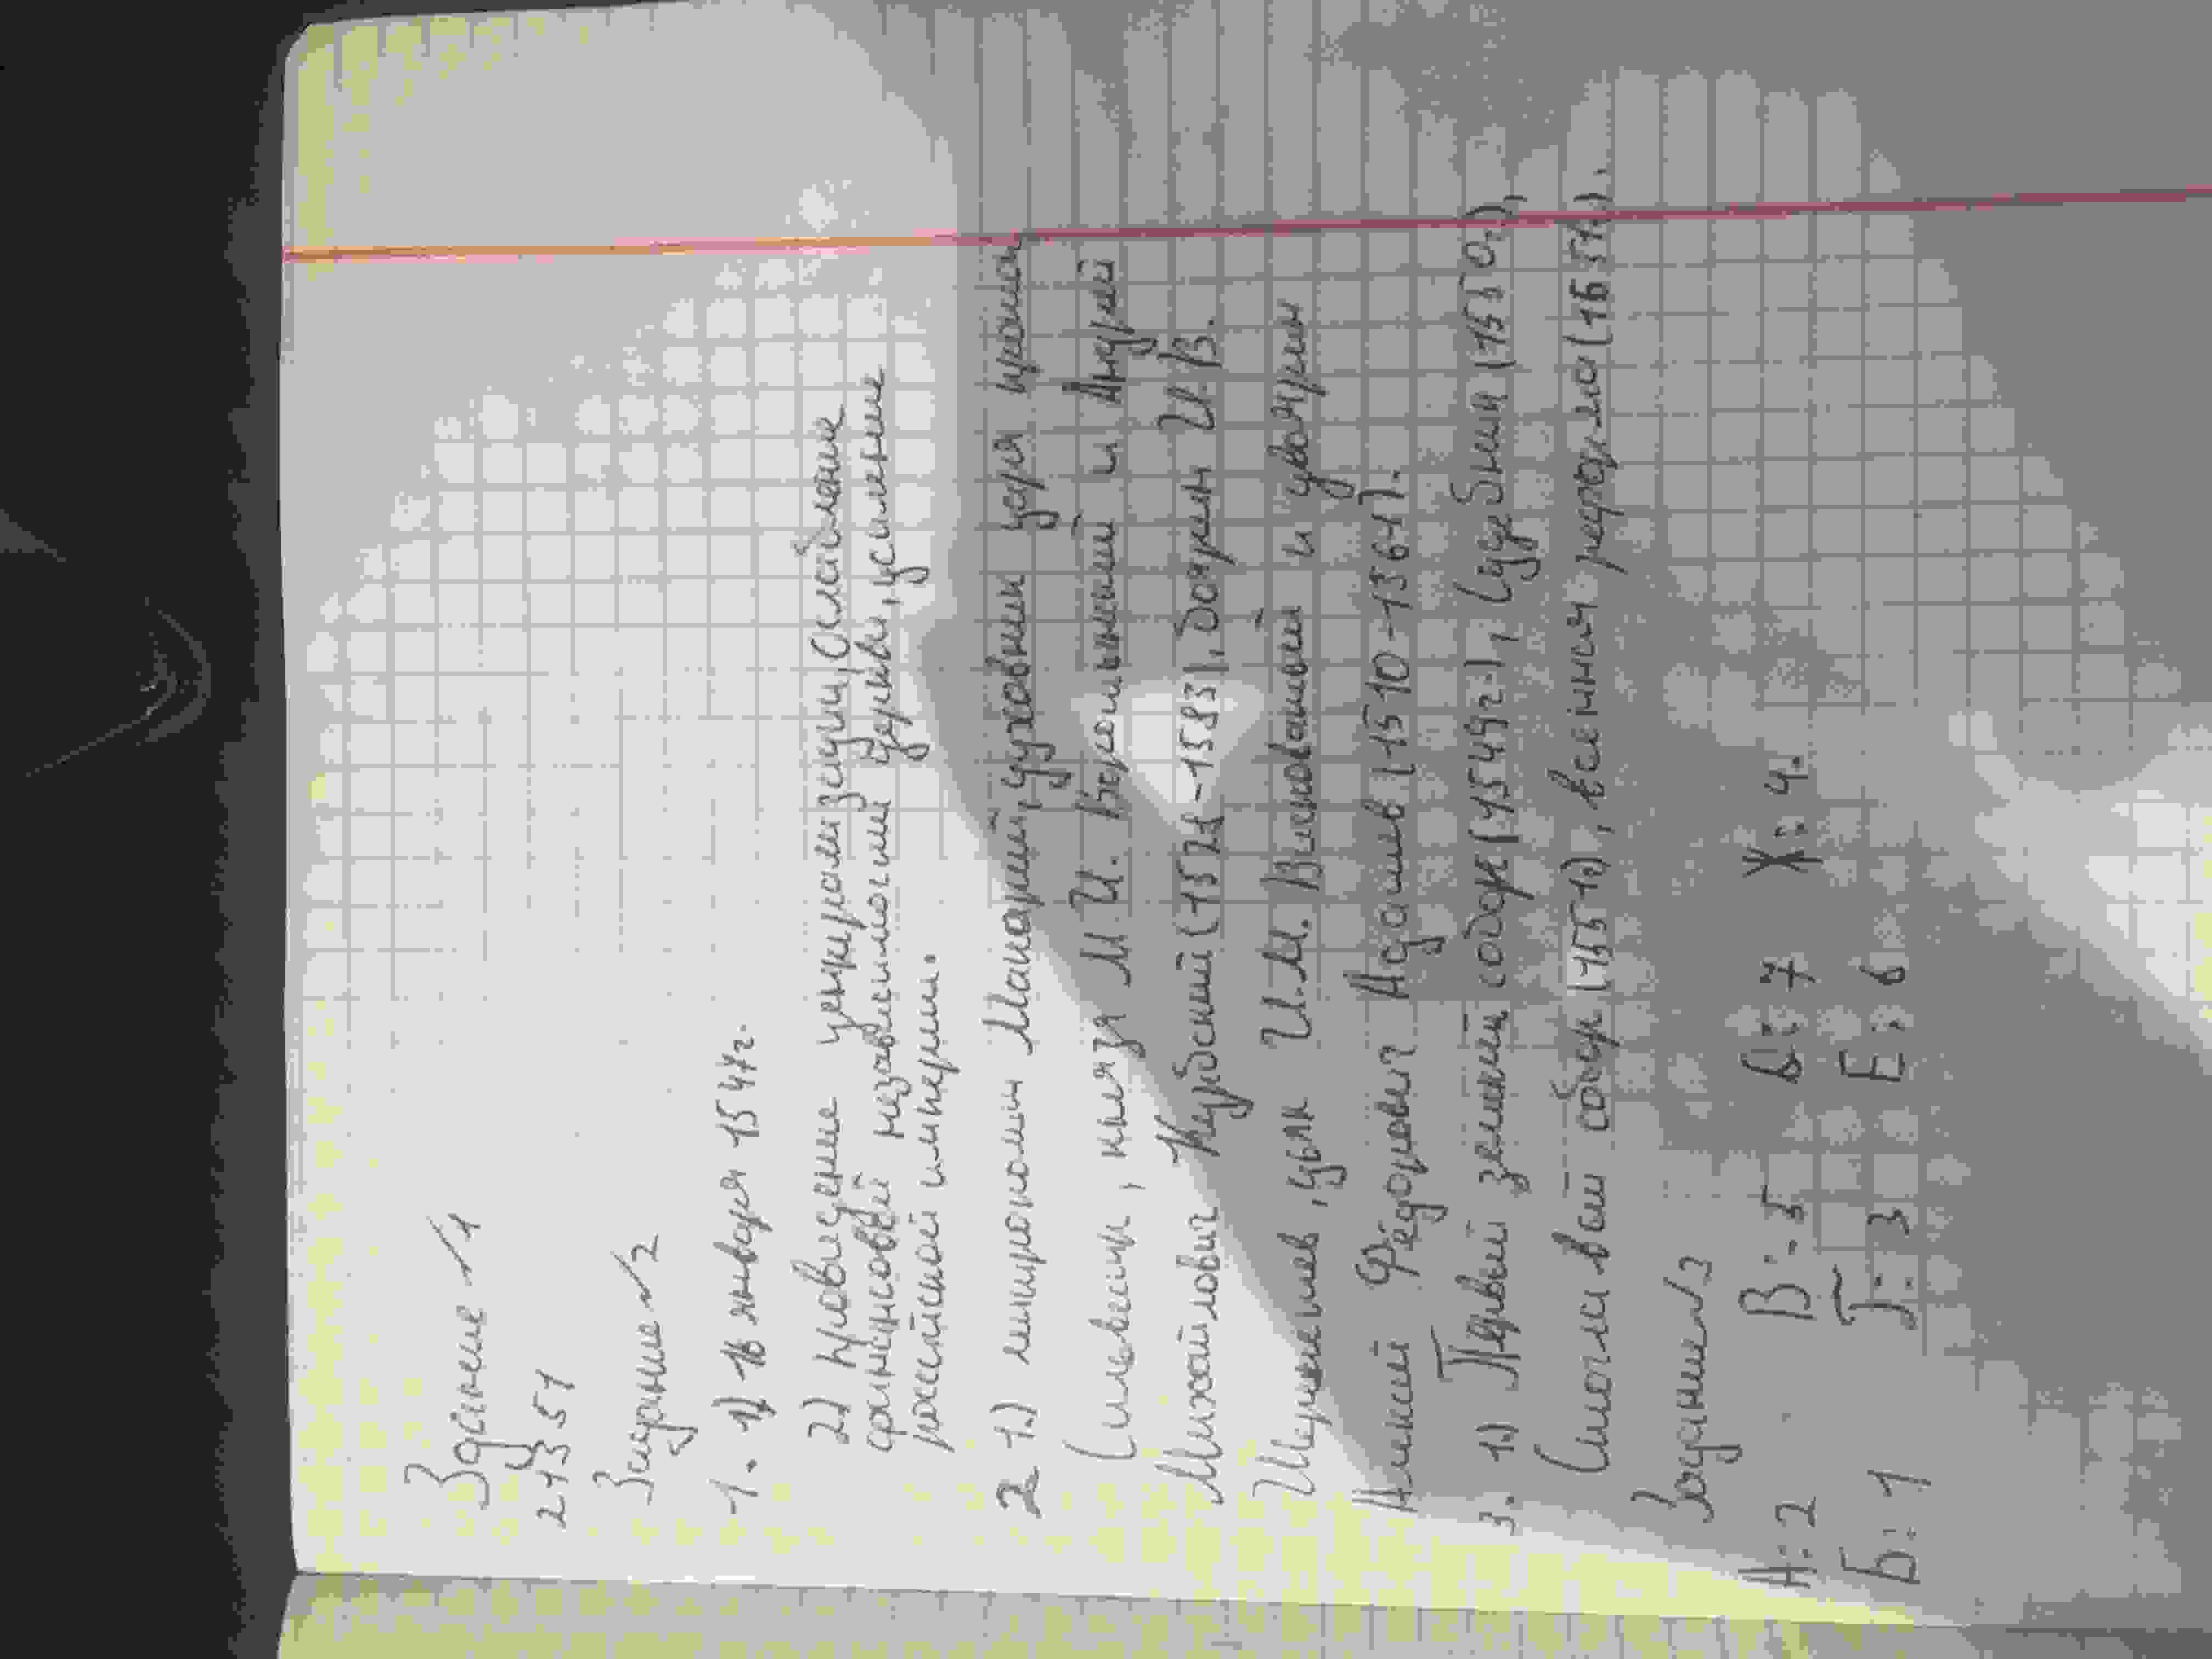 Здание №1
24351
Задание №2
1. 1) 16 января 1547г.
2) проведение централизации, Ослабление
финансовой независимости церкви, усиление
российской империи.
2 1.) митрополит Макарий, духовник царя
Сильвестр, князя М И. и Андрей
Михайлович Курбский (1528-1583), боярин И.В.
Шереметев, дьяк И.М. Висковатый и дворянин
Алексей Фёдорович Адашев (1510-1561).
3. 1) Первый земский собор (1549г.), Судебник (1550г.),
Стоглавый собор (1551г), земская реформа (1551г).
Задание №3
А: 2 В: 5 Д: 7 Ж: 4.
Б: 1 Г: 3 Е: 6